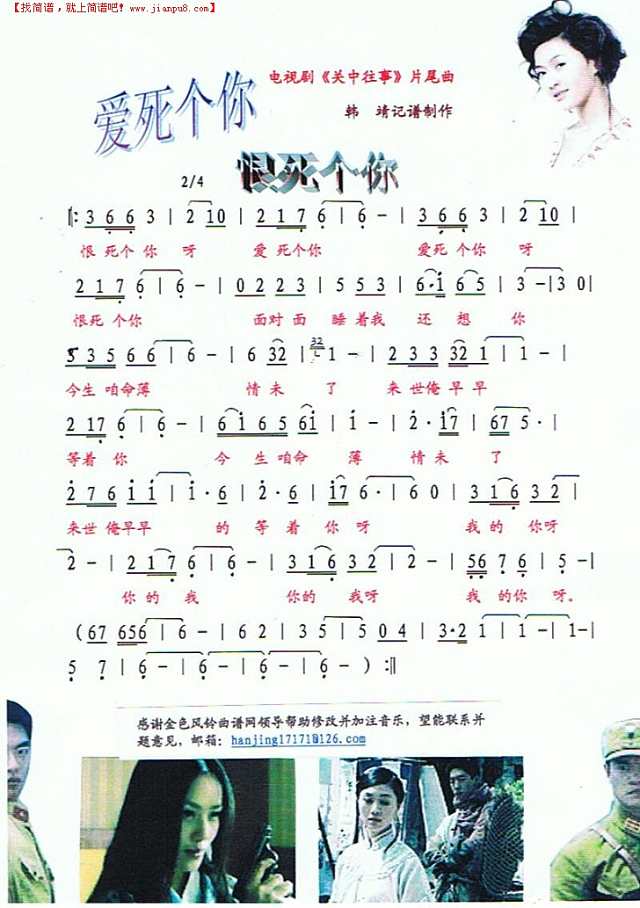 【找简谱，就上简谱吧! www.jianpu8.com】
电视剧《关中往事》片尾曲
爱死个你
韩 靖记谱制作
恨死个你
2/4
‖: 3 6 6 3 | 2 10 | 2 1 7 6 | 6 - | 3 6 6 3 | 2 10 |
恨 死个 你 呀 爱 死个你 爱死 个你 呀
2 1 7 6 | 6 - | 0 2 2 3 | 5 5 3 | 6·i 6 5 | 3 - | 3 0 |
恨死 个你 面对 面 睡 着我 还 想 你
5 3 5 6 6 | 6 - | 6 32 | 32 1 - | 2 3 3 32 1 | 1 - |
今生 咱命薄 情 未 了 来 世俺 早早
2 17 6 | 6 - | 6 i 6 5 6i | i - | 2·i7 | 67 5· |
等着 你 今 生 咱命 薄 情 未 了
2 7 6 i i | i·6 | 2·6 | i7 6· | 6 0 | 3 1 6 3 2 |
来世 俺早早 的 等 着 你 呀 我 的 你呀
2 - | 2 1 7 6 | 6 - | 3 1 6 3 2 | 2 - | 56 7 6 | 5 - |
你 的 我 你的 我呀 我 的你 呀。
( 67 656 | 6 - | 6 2 | 3 5 | 5 0 4 | 3·2 1 | 1 - | 1 - |
5 7 | 6 - | 6 - | 6 - | 6 - ) :‖
感谢金色风铃曲谱网领导帮助修改并加注音乐，望能联系并
题意见，邮箱：hanjing17171@126.com